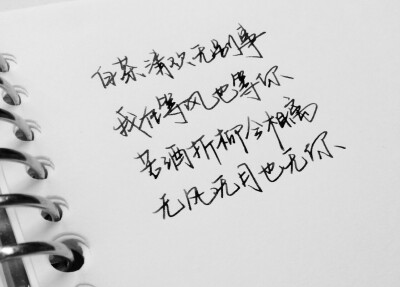 白茶清欢无别事
我在等风也等你
苦酒折柳今相离
无风无月也无你